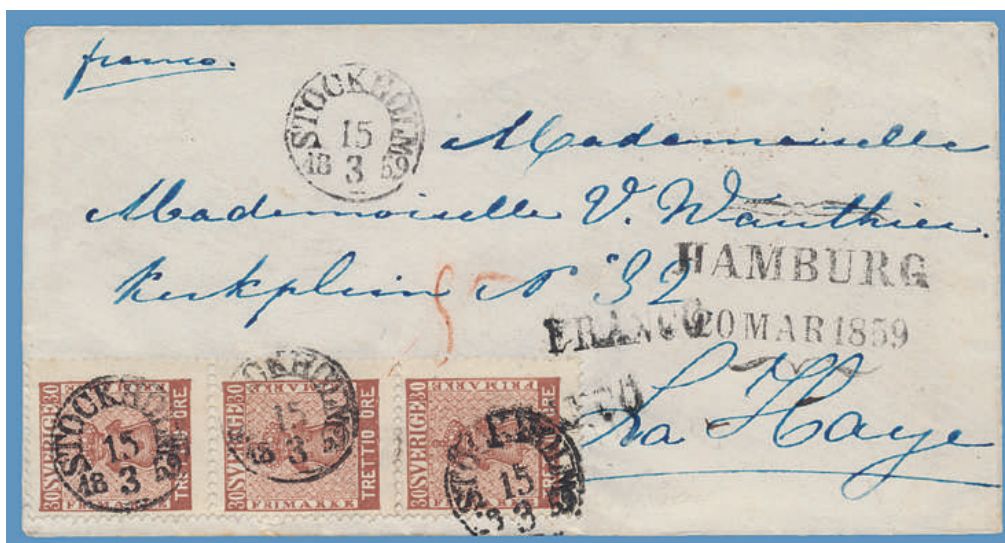 franco.
STOCKHOLM
15
18 3 59
Mademoiselle
Mademoiselle V. Wauthier.
Kerkplein N 32
HAMBURG
FRANCO
20 MAR 1859
La Haye
30 SVERIGE 30
FRIMARKE
TRETTIO ORE
STOCKHOLM
15
18 3 59
30 SVERIGE 30
FRIMARKE
TRETTIO ORE
STOCKHOLM
15
18 3 59
30 SVERIGE 30
FRIMARKE
TRETTIO ORE
STOCKHOLM
15
18 3 59